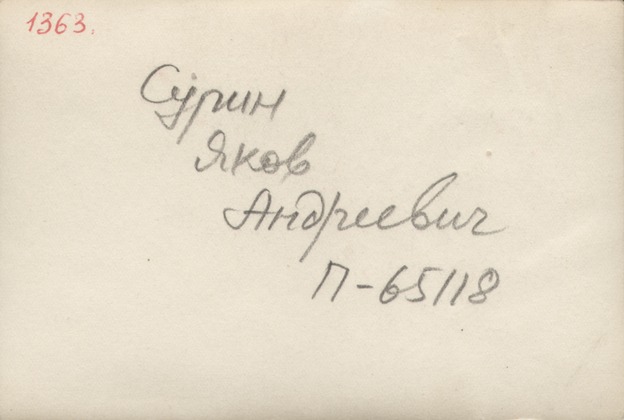 1363.
Сурин
Яков
Андреевич
П-65118